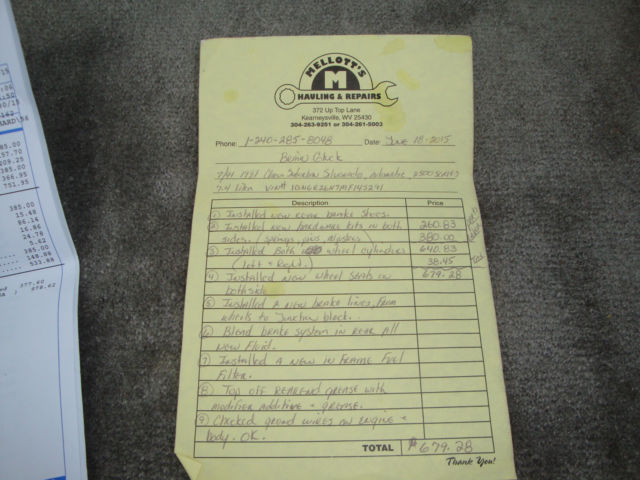 MELLOTT'S
M
HAULING & REPAIRS
372 Up Top Lane
Kearneysville, WV 25430
304-263-9251 or 304-261-5003
Phone: 1-240-285-8048 Date: June 18-2015
Brian Gluck
1991 Chevy Suburban Silverado, Automatic, 2500 Series
7.4 Liter Vin#
Description Price
① Installed new rear brake shoes.
② Installed new hardware kits in both 260.83
sides. (springs, pins, adjusters) 380.00
③ Installed Both wheel cylinders 640.83
(left + Right.) 38.45 Tax
④ Installed New wheel seals on 679.28
both side
⑤ Installed 2 new brake lines, from
wheels to Junction block.
⑥ Bleed brake system in rear All
New Fluid.
⑦ Installed A new in Frame Fuel
Filter.
⑧ Top off REAREND grease with
modifier additive + grease.
⑨ Checked ground wires on ENGINE +
body. OK.
TOTAL $679.28
Thank You!
385.00
157.70
209.25
385.00
366.95
751.95
385.00
15.48
86.14
16.86
24.78
5.62
385.00
148.88
533.88